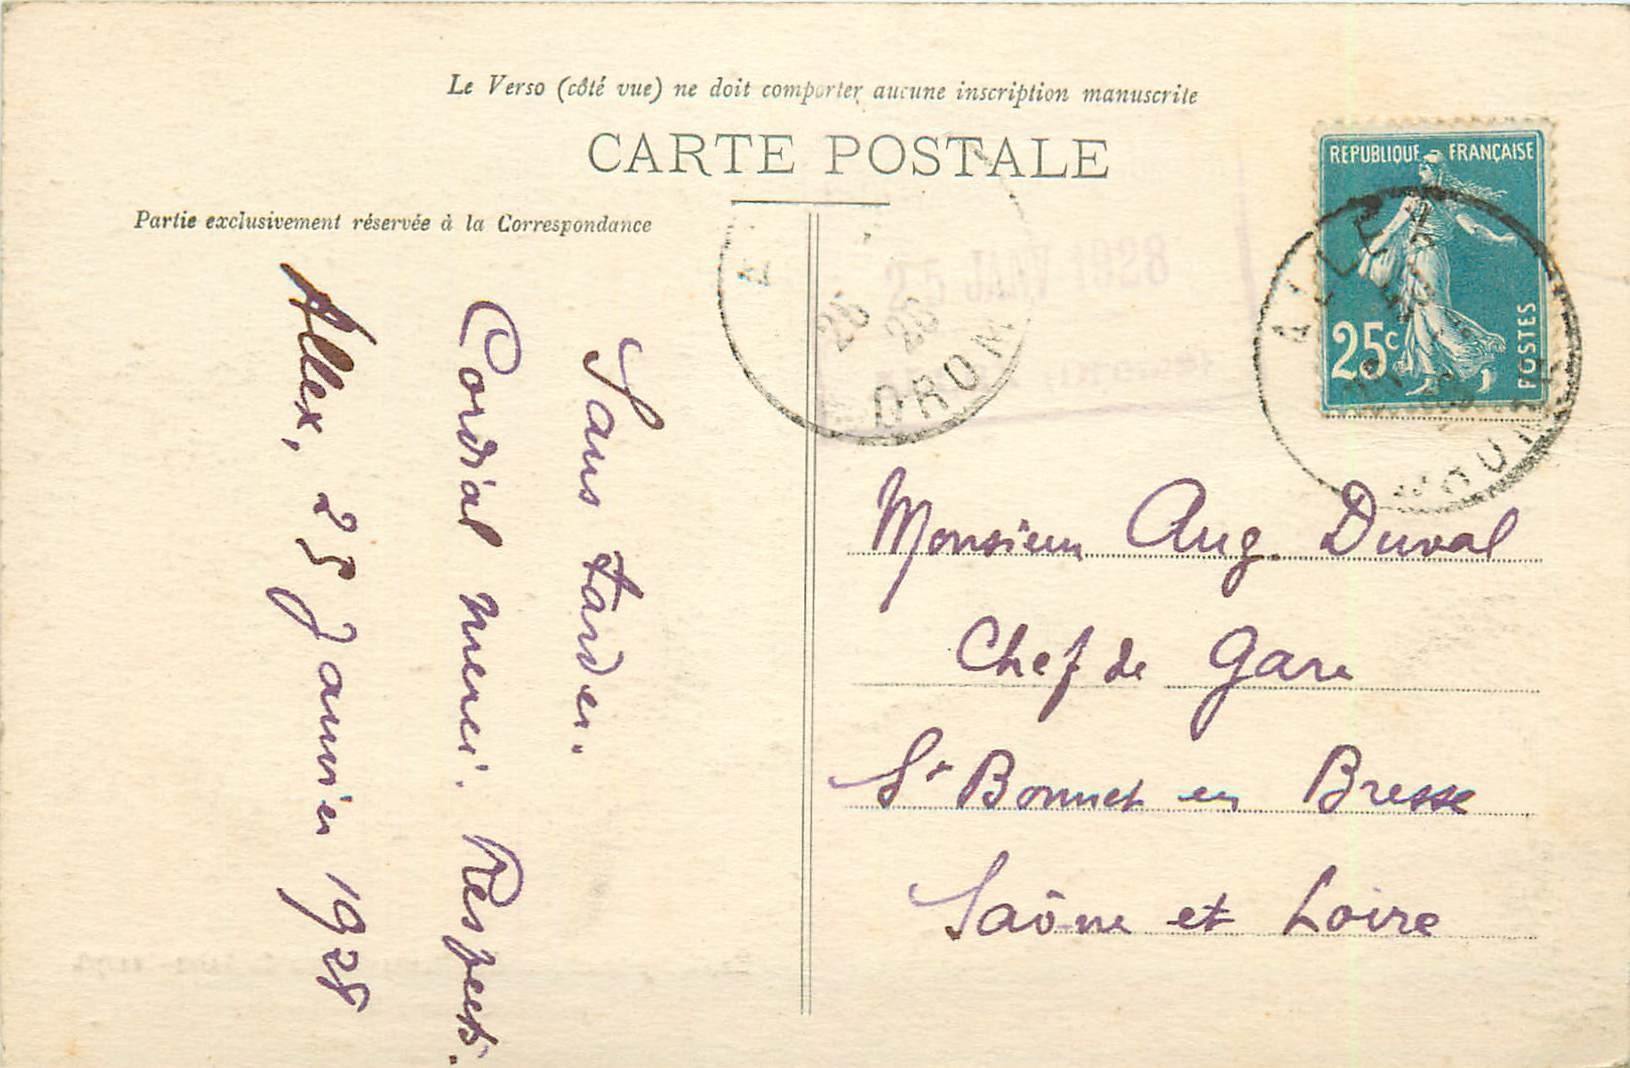 Le Verso (côté vue) ne doit comporter aucune inscription manuscrite
CARTE POSTALE
Partie exclusivement réservée à la Correspondance
REPUBLIQUE FRANÇAISE
25c
POSTES
ALLEX
25 JANV 1928
DROM
Sans tarder.
Cordial merci. Respects.
Allex, 25 Janvier 1928
Monsieur Aug. Duval
Chef de Gare
St Bonnet en Bresse
Saône et Loire